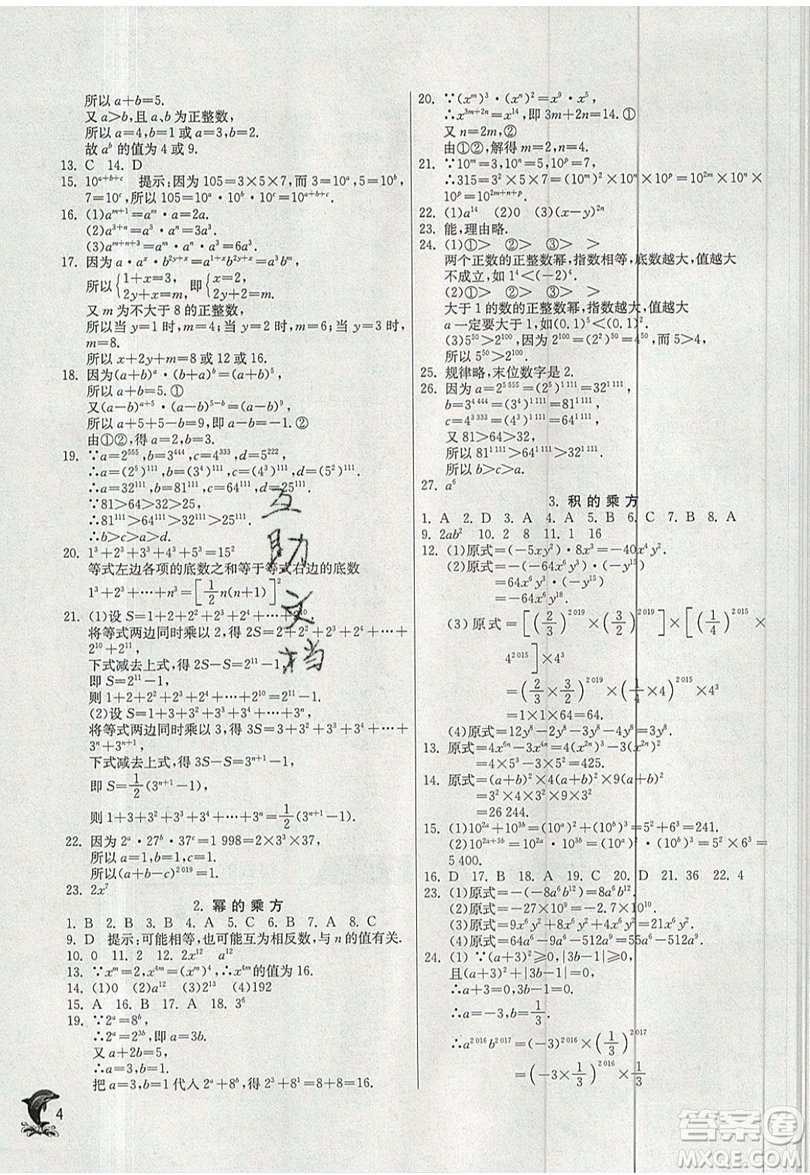 所以a+b=5.
又a>b,且a、b为正整数,
所以a=4,b=1或a=3,b=2.
故a^b的值为4或9.
13. C 14. D
15. 10^{a+b+c} 提示:因为105=3×5×7,而3=10^a,5=10^b,
7=10^c,所以105=10^a·10^b·10^c=10^{a+b+c}.
16. (1)a^{m+1}=a^m·a=2a.
(2)a^{3+n}=a^3·a^n=3a^3.
(3)a^{m+n+3}=a^m·a^n·a^3=6a^3.
17. 因为a^x·b^{2y+x}=a^{1+x}b^{2y+x}=a^3b^m,
所以{1+x=3, 2y+x=m, 即{x=2, 2y+2=m.
又m为不大于8的正整数,
所以当y=1时,m=4;当y=2时,m=6;当y=3时,
m=8.
所以x+2y=m=8或12或16.
18. 因为(a+b)^a·(b+a)^b=(a+b)^5,
所以a+b=5.①
又(a-b)^{a+5}·(a-b)^{5-b}=(a-b)^9,
所以a+5+5-b=9,即a-b=-1.②
由①②,得a=2,b=3.
19. ∵a=2^{555},b=3^{444},c=4^{333},d=5^{222},
∴a=(2^5)^{111},b=(3^4)^{111},c=(4^3)^{111},d=(5^2)^{111}.
∴a=32^{111},b=81^{111},c=64^{111},d=25^{111}.
∵81>64>32>25,
∴81^{111}>64^{111}>32^{111}>25^{111}.
∴b>c>a>d.
20. 1^3+2^3+3^3+4^3+5^3=15^2
等式左边各项的底数之和等于等式右边的底数
1^3+2^3+…+n^3=[1/2 n(n+1)]^2
21. (1)设S=1+2+2^2+2^3+2^4+…+2^{10},
将等式两边同时乘以2,得2S=2+2^2+2^3+2^4+…+
2^{10}+2^{11},
下式减去上式,得2S-S=2^{11}-1,
即S=2^{11}-1,
则1+2+2^2+2^3+2^4+…+2^{10}=2^{11}-1.
(2)设S=1+3+3^2+3^3+3^4+…+3^n,
将等式两边同时乘以3,得3S=3+3^2+3^3+3^4+…+
3^n+3^{n+1},
下式减去上式,得3S-S=3^{n+1}-1,
即S=1/2(3^{n+1}-1),
则1+3+3^2+3^3+3^4+…+3^n=1/2(3^{n+1}-1).
22. 因为2^a·3^b·37^c=1 998=2×3^3×37,
所以a=1,b=3,c=1.
所以(a-b+c)^{2 019}=-1.
23. 2x^7
2. 幂的乘方
1. B 2. B 3. D 4. D 5. C 6. A 7. B 8. C
9. D 提示:可能相等,也可能互为相反数,与n的值有关.
10. 0 11. 2 12. 2x^{12} a^{12}
13. ∵x^m=2,x^{4m}=(x^m)^4,∴x^{4m}的值为16.
14. (1)0 (2)a^{12} (3)2^{13} (4)192
15. A 16. B 17. A 18. 3^6
19. ∵2^a=8^b,
∴2^a=2^{3b},即a=3b.
又a+2b=5,
∴a=3,b=1.
把a=3,b=1代入2^a+8^b,得2^a+8^b=8+8=16.
4
20. ∵(x^m)^3·(x^n)^2=x^9·x^5,
∴x^{3m+2n}=x^{14},即3m+2n=14.①
又n=2m,②
由①②,解得m=2,n=4.
21. ∵3=10^m,5=10^n,7=10^p,
∴315=3^2×5×7=(10^m)^2×10^n×10^p=10^{2m}×10^n×
10^p=10^{2m+n+p}.
22. (1)a^{14} (2)0 (3)(x-y)^{2n}
23. 能,理由略.
24. (1)①> ②> ③> >
两个正数的正整数幂,指数相等,底数越大,值越大
不成立,如1^4<(-2)^4.
(2)①> ②> ③> >
大于1的数的正整数幂,指数越大,值越大
a一定要大于1,如(0.1)^5<(0.1)^2.
(3)5^{50}>2^{100}.因为2^{100}=(2^2)^{50}=4^{50},而5>4,
所以5^{50}>2^{100}.
25. 规律略,末位数字是2.
26. 因为a=2^{5 555}=(2^5)^{1 111}=32^{1 111},
b=3^{4 444}=(3^4)^{1 111}=81^{1 111},
c=4^{3 333}=(4^3)^{1 111}=64^{1 111},
又81>64>32,
所以81^{1 111}>64^{1 111}>32^{1 111}.
所以b>c>a.
27. a^6
3. 积的乘方
1. A 2. D 3. A 4. A 5. B 6. C 7. B 8. A
9. 2ab^2 10. 2 8 11. 1 16
12. (1)原式=(-5xy^2)·8x^3=-40x^4y^2.
(2)原式=(-64x^6y^3)·(-y^{15})
=64x^6y^3·y^{15}
=64x^6y^{18}.
(3)原式=[(2/3)^{2 019}×(3/2)^{2 019}]×[(1/4)^{2 015}×
4^{2 015}]×4^3
=(2/3×3/2)^{2 019}×(1/4×4)^{2 015}×4^3
=1×1×64=64.
(4)原式=12y^8-2y^8-3y^8=7y^8.
13. 原式=4x^{6n}-3x^{4n}=4(x^{2n})^3-3(x^{2n})^2
=4×5^3-3×5^2=425.
14. 原式=(a+b)^2×4(a+b)^2×9(a+b)^4
=3^2×4×3^2×9×3^4
=26 244.
15. (1)10^{2a}+10^{3b}=(10^a)^2+(10^b)^3=5^2+6^3=241.
(2)10^{2a+3b}=10^{2a}·10^{3b}=(10^a)^2×(10^b)^3=5^2×6^3=
5 400.
16. D 17. B 18. A 19. C 20. D 21. 36 22. 4
23. (1)原式=a^6b^{12}+(-8a^6b^{12})=-7a^6b^{12}.
(2)原式=-27×10^9=-2.7×10^{10}.
(3)原式=9x^6y^4+8x^6y^4-x^6y^4=16x^6y^4.
(4)原式=64a^6-9a^6-512a^6=-457a^6.
24. (1)∵(a+3)^2≥0,|3b-1|≥0,
且(a+3)^2+|3b-1|=0,
∴a=-3,b=1/3.
∴a^{2 016}b^{2 017}=(-3)^{2 016}×(1/3)^{2 017}
=(-3×1/3)^{2 016}×1/3=1/3.
互助文档
答案圈
MXQE.COM